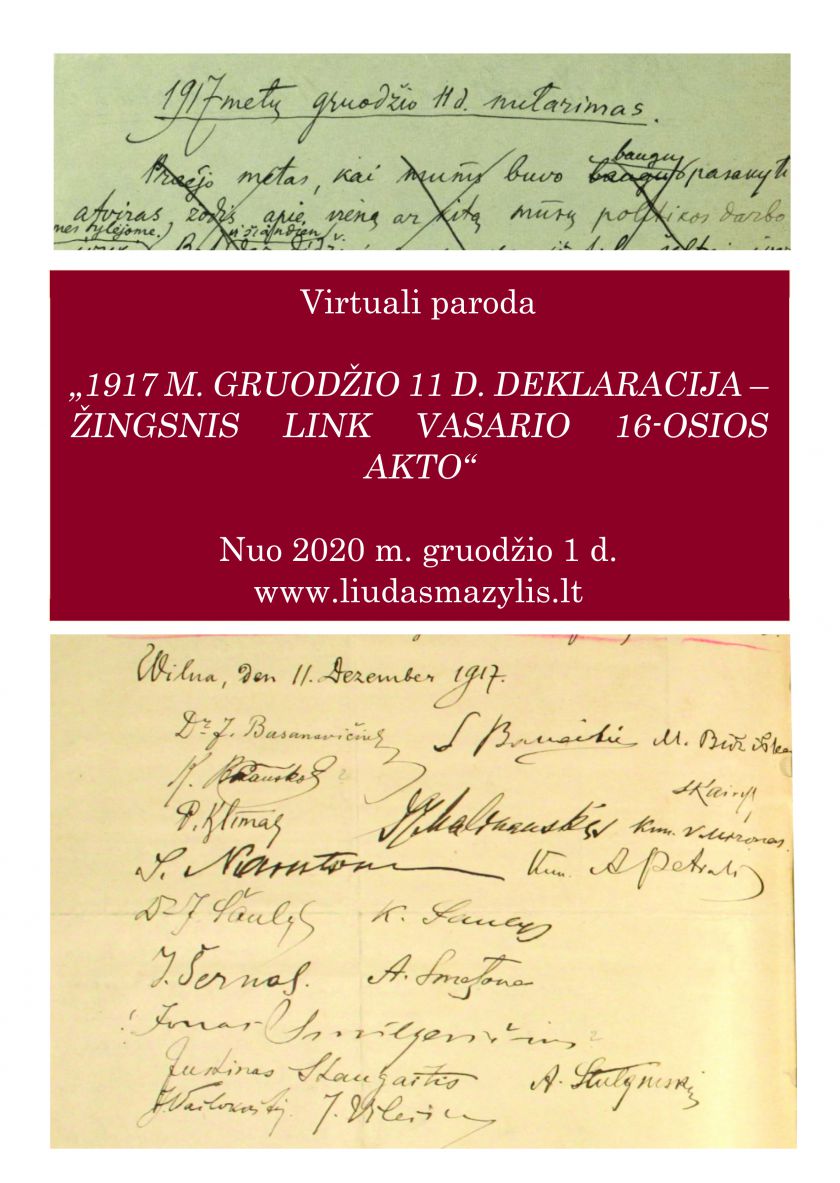 1917 metų gruodžio 11 d. nutarimas.
Praėjo metas, kai mums buvo baugu pasakyti
baugu
atviras žodis apie vieną ar kitą mūsų politikos darbo
mes tylėjome.) šiandien
Virtuali paroda
„1917 M. GRUODŽIO 11 D. DEKLARACIJA –
ŽINGSNIS LINK VASARIO 16-OSIOS
AKTO“
Nuo 2020 m. gruodžio 1 d.
www.liudasmazylis.lt
Wilna, den 11. Dezember 1917.
Dr J. Basanavičius S Banaitis M. Biržiška
K. Bizauskas Kairys
P. Klimas DMalinauskas kun. V Mironas.
S. Narutow kun. A Petrulis
Dr J. Šaulys K. Šaulys
J. Šernas. A. Smetona
Jonas Smilgevičius
Justinas Staugaitis A. Stulginskis
J. Vailokaitis J. Vileišis